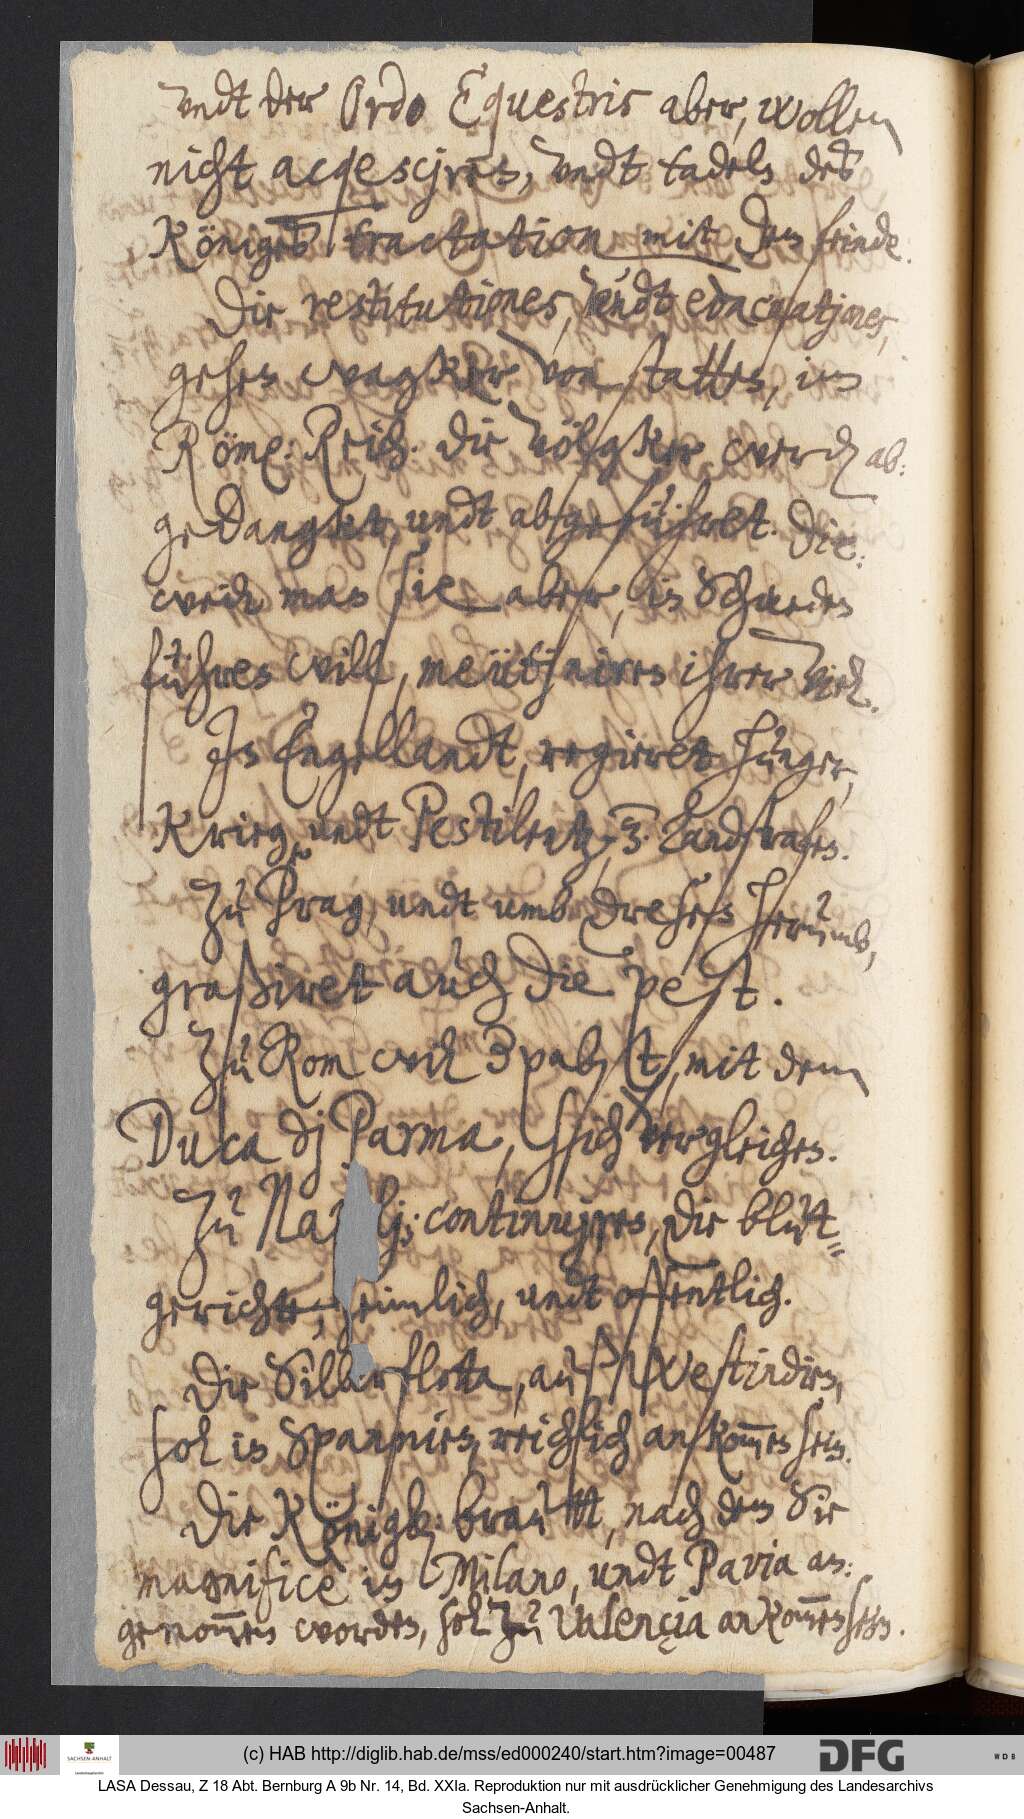 vndt der Ordo Equestris aber, wollen
nicht acqescjren, vndt tadeln des
Königes tractation mit dem feinde.
Die restitutiones, undt evacuatjones,
gehen wagker von statten, im
Röm: Reich. die völgker werden ab:
gedangket, undt abgeführet. Die:
weil man sie aber, in Schweden
führen will, meütjniren ihrer viel.
In Engellandt, regieret hunger,
Krieg, undt Pestilentz, 3. Landstrafen.
Zu Prag, undt umb Dresen herumb,
graßiret auch die pest.
Zu Rom will der pabst, mit dem
Duca dj Parma, sich vergleichen.
Zu Na lj: continuiren, die blut¬
gerichte, heimlich, undt offentlich.
Die Silberflotta, auß Westindien,
sol in Spannien, reichlich ankommen sein.
Die Königl: brautt, nach dem Sie
magnifice in Milano, undt Pavia an:
genommen worden, sol zu Valençia ankommen sein.
(c) HAB http://diglib.hab.de/mss/ed000240/start.htm?image=00487
SACHSEN-ANHALT
DFG
WDB
LASA Dessau, Z 18 Abt. Bernburg A 9b Nr. 14, Bd. XXIa. Reproduktion nur mit ausdrücklicher Genehmigung des Landesarchivs
Sachsen-Anhalt.